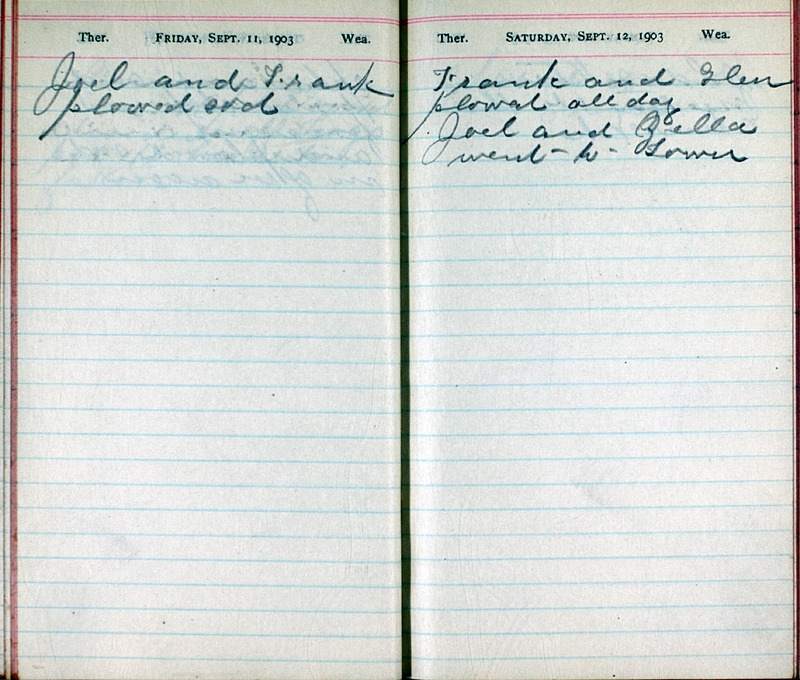 Ther. FRIDAY, SEPT. 11, 1903 Wea.
Joel and Frank
plowed
Ther. SATURDAY, SEPT. 12, 1903 Wea.
Frank and Glen
plowed all day
Joel and Zella
went to Tower